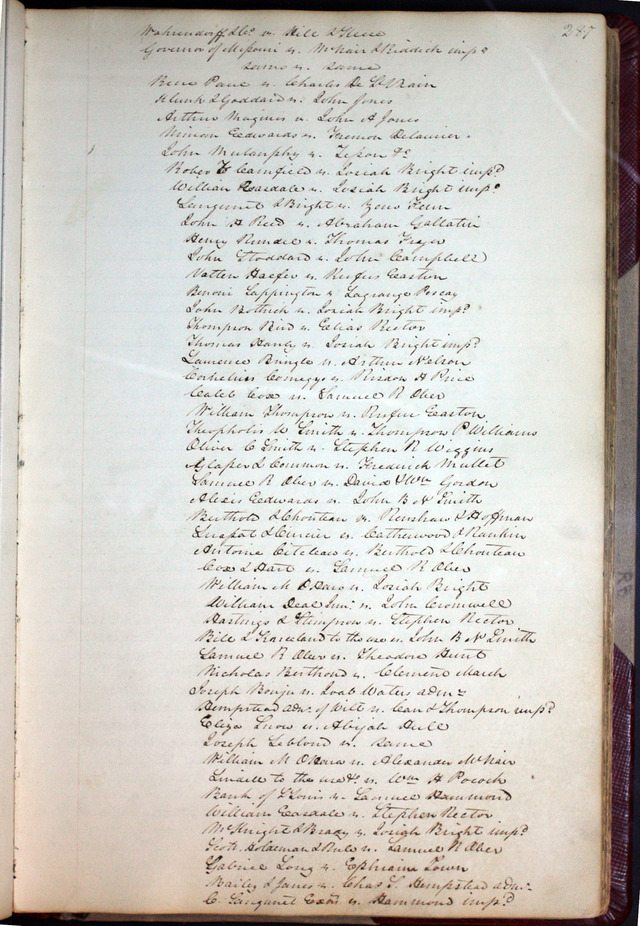 287
Wahrendorff &Co. vs. Hill &
Governor of Missouri vs. McNair & Riddick impd
same vs. same
Rene Paul vs. Charles De
& Goddard vs. John Jones
Arthur Magines vs. John A Jones
Ninian Eedwards vs.
John Mulanphy vs. &c
Robert Camfield vs. Josiah Bright impd
William Easdale vs. Josiah Bright impd
& Bright vs.
John H Reed vs. Abraham Gallatin
Henry vs. Thomas
John Stoddard vs. John Campbell
Vatten Haefer vs. Rufus Easton
Benoni Sappington vs. Lagrange
John Bothick vs. Josiah Bright impd
Thompson Bird vs. Elias Rector
Thomas Hanly vs. Josiah Bright impd
Laurence Bringle vs. Arthur Nelson
Cornelius Comegys vs. Risdon H Price
Caleb Cox vs. Samuel R Ober
William Thompson vs. Rufus Easton
Theophilis W Smith vs. Thompson P Williams
Oliver C Smith vs. Stephen R Wiggins
& Common vs. Frederick Mullet
Samuel R Ober vs. David & Wm Gordon
Alexis Eedwards vs. John B N Smith
Berthold & Chouteau vs. Renshaw & Hoffman
& vs. Catherwood & Rankin
Antoine vs. Berthold & Chouteau
Cox & Hart vs. Samuel R Ober
William M OHara vs. Josiah Bright
William Deal Junr vs. John Cromwell
Hastings & Stimpson vs. Stephen Rector
Bill & to the use vs. John B N Smith
Samuel R Ober vs. Theodore Hunt
Nicholas Berthoud vs. Clement March
Joseph vs. Joab Waters admr
Hempstead admr of Wilt vs. & Thompson impd
Eliza Snow vs. Abijah Hull
Joseph Leblond vs. same
William M OHara vs. Alexander McNair
Lindell to the use &c vs. Wm H Pocock
Bank of St Louis vs. Samuel Hammond
William Easdale vs. Stephen Rector
McKnight & Brady vs. Josiah Bright impd
Scott Holdeman & Rule vs. Samuel R Ober
Gabriel Long vs. Ephraim Town
& Janes vs. Chas S. Hempstead admr
C. Exr vs. Hammond impd